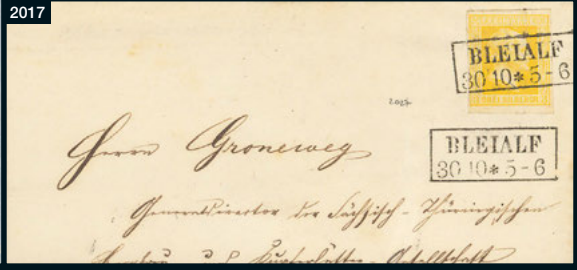 2017
BLEIALF
30 10 * 5-6
2017
BLEIALF
30 10 * 5-6
Herrn Groneweg
Generaldirector der Sächsisch-Thüringischen
u Kupferhütten-Gesellschaft